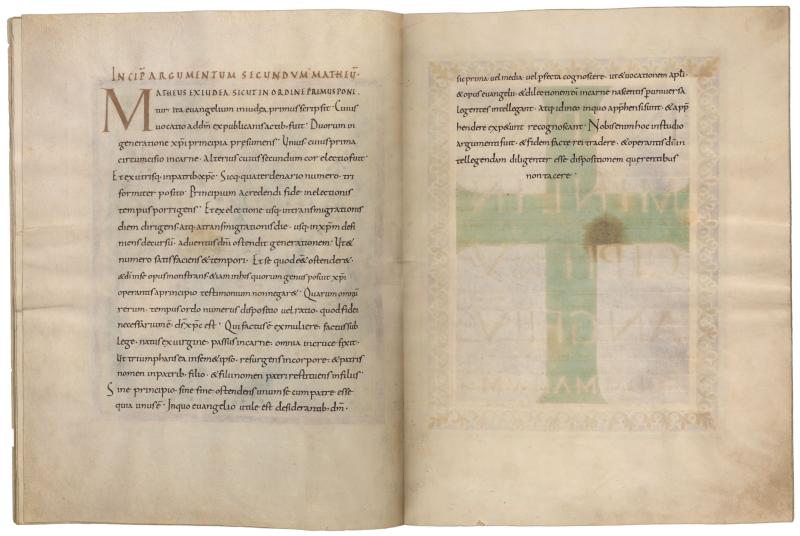 INCIP̅ ARGUMENTUM SECUNDVM MATHEV̅·
MATHEUS EX IUDEA SICUT IN ORDINE PRIMUS PONI
tur· ita evangelium in iudea primus scripsit· Cuius
vocatio ad dm̅ ex publicanis actib; fuit· Duorum in
generatione xp̅i principia presumens· Unius cuius prima
circumcisio in carne· Alterius cuius secundum cor electio fuit·
Et ex utrisq; in patrib; xp̅c· Sicq; quaternario numero· tri
formiter posito· Principium a credendi fide in electionis
tempus porrigens· Et ex electione usq; in transmigrationis
diem dirigens· atq; a transmigrationis die· usq; in xp̅m defi
niens decursu̅· adventus dn̅i ostendit generationem· Ut &
numero satisfaciens & tempori· Et se quod e&̅ ostender&·
& di̅ in se opus monstrans· &iam in his quorum genus posuit xp̅i
operantis a principio testimonium non negar&· Quarum omniu̅
rerum· tempus ordo numerus dispositio vel ratio· quod fidei
necessarium e̅· ds̅ xp̅c est· Qui factus e̅ ex muliere· factus sub
lege· natus ex virgine· passus in carne· omnia in cruce fixit·
Ut triumphans ea in sem&ipso· resurgens in corpore· & patris
nomen in patrib; filio· & filii nomen patri restituens in filiis·
Sine principio· sine fine· ostendens unum se cum patre esse
quia unus e̅· In quo evangelio utile est desiderantib; dm̅·
sic prima· vel media· vel p̅fecta cognoscere· ut & vocationem apl̅i
& opus evangelii· & dilectionem di̅ in carne nascentis p̅ universa
legentes intellegant· atq; id in eo· in quo app̅hensi sunt· & app̅
hendere exp&unt recognoscant· Nobis enim hoc in studio
argumenti fuit· & fidem facte rei tradere· & operantis di̅ in
tellegendam diligenter esse dispositionem querentibus
non tacere·